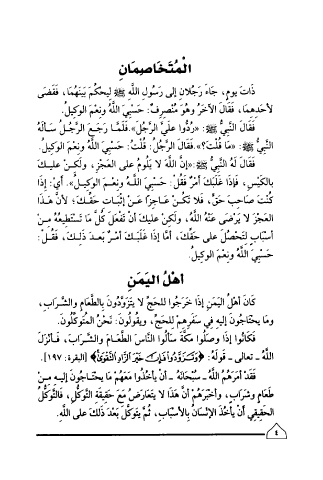 الْمُتَخَاصِمَانِ
ذَاتَ يومٍ، جَاءَ رَجُلَانِ إلى رَسُولِ اللَّهِ ﷺ لِيحكُمَ بَينَهُمَا، فَقَضَى
لأَحدِهِمَا، فَقَالَ الآخَرُ وهُوَ مُنْصَرِفٌ: حَسْبِيَ اللَّهُ ونِعْمَ الوَكِيلُ.
فَقَالَ النَّبِيُّ ﷺ: «رُدُّوا عَلَيَّ الرَّجُلَ». فَلَمَّا رَجَعَ الرَّجُلُ سَأَلَهُ
النَّبِيُّ ﷺ: «مَا قُلْتَ؟». فَقَالَ الرَّجُلُ: قُلْتُ: حَسْبِيَ اللَّهُ ونِعْمَ الوَكِيلُ.
فَقَالَ لَهُ النَّبِيُّ ﷺ: «إنَّ اللَّهَ لا يَلُومُ عَلى العَجْزِ، ولَكنْ عليكَ
بالكَيْسِ، فَإذَا غَلَبَكَ أمْرٌ فَقُلْ: حَسْبِيَ اللَّهُ ونِعْمَ الوَكِيلُ». أيْ: إذَا
كُنْتَ صَاحِبَ حَقٍّ، فَلا تَكُنْ عَاجِزًا عَنْ إثْبَاتِ حَقِّكَ؛ لأنَّ هَذَا
العَجْزَ لا يَرْضَى عَنْهُ اللَّهُ، ولَكِنْ عَليكَ أنْ تَفْعَلَ كُلَّ مَا تَسْتَطِيعُهُ مِنْ
أسبَابٍ لِتَحْصُلَ على حَقِّكَ، أمَّا إذَا غَلَبَكَ أمْرٌ بَعدَ ذَلِكَ، فَقُلْ:
حَسْبِيَ اللَّهُ ونِعْمَ الوكِيلُ.
أَهْلُ اليَمَنِ
كَانَ أهْلُ اليَمَنِ إذَا خَرَجُوا لِلحَجِّ لا يَتزَوَّدُونَ بِالطَّعَامِ والشَّرَابِ،
ومَا يحتَاجُونَ إليهِ في سَفَرِهِمْ لِلحَجِّ، ويقُولُونَ: نَحْنُ المُتَوَكِّلُونَ.
فَكَانُوا إذَا وصَلُوا مَكَّةَ سَأَلُوا النَّاسَ الطَّعَامَ والشَّرَابَ، فَأنزَلَ
اللَّهُ - تعالى - قولَهُ: ﴿وَتَزَوَّدُوا فَإِنَّ خَيْرَ الزَّادِ التَّقْوَى﴾ [البقرة: ١٩٧].
فَقَدْ أمَرَهُمُ اللَّهُ - سُبْحَانَهُ - أنْ يأخُذُوا مَعَهُمْ مَا يحتَاجُونَ إليهِ مِنْ
طَعَامٍ وشَرَابٍ، وأخبَرَهُمْ أنَّ هَذَا لا يَتعَارَضُ مَعَ حَقِيقَةِ التَّوكُّلِ، فَالتَّوَكُّلُ
الحَقِيقِي أنْ يَأخُذَ الإنْسَانُ بِالأَسْبَابِ، ثُمَّ يتَوكَّلَ بَعْدَ ذَلكَ على اللَّهِ.
٤